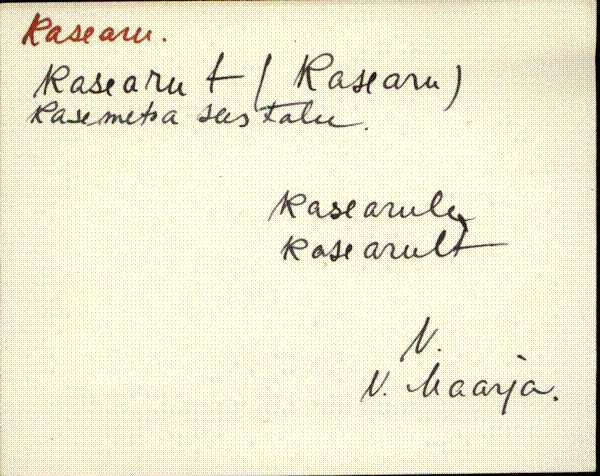 Kasearu.
Kasearu t (Kasearu)
Kasemetsa sees talu.
Kasearule
Kasearult
V.
V. Maarja.